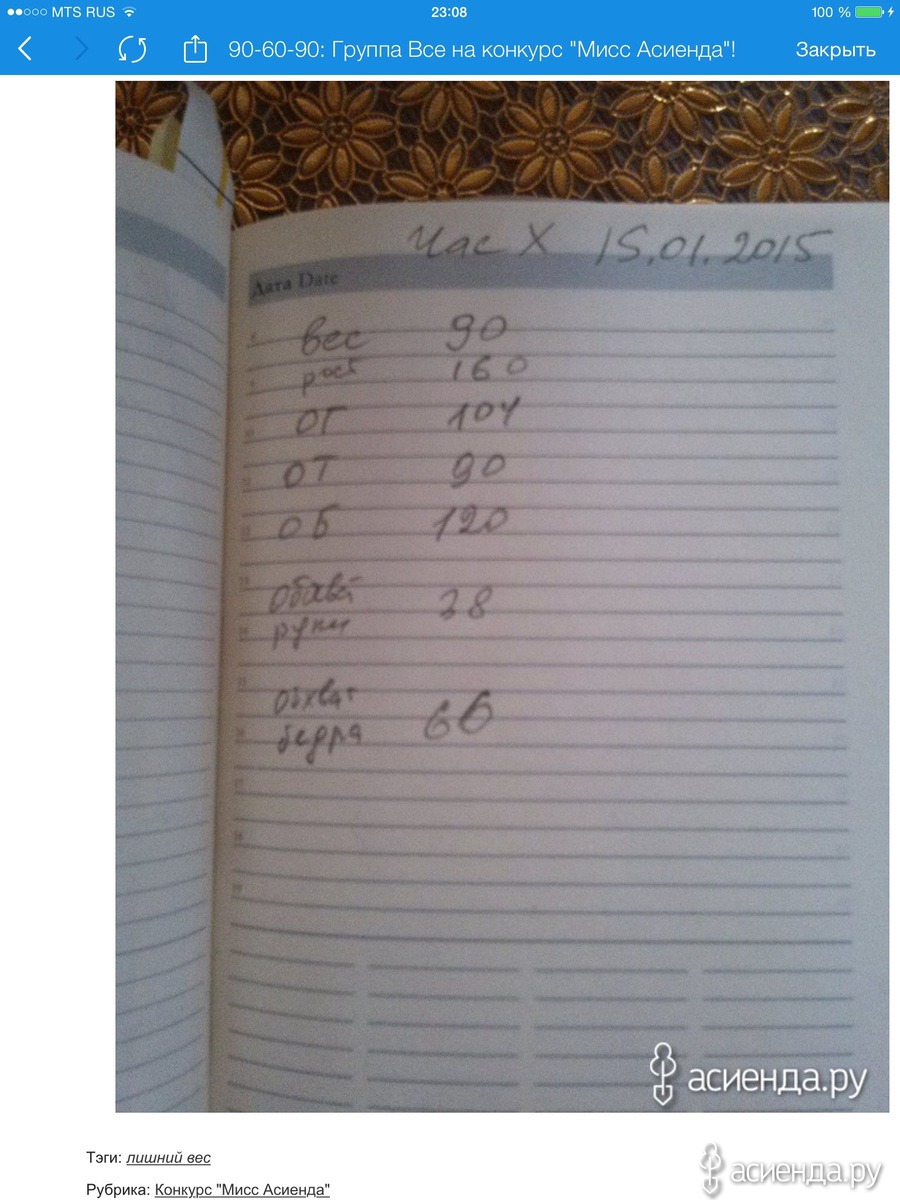 MTS RUS 23:08 100 %
90-60-90: Группа Все на конкурс "Мисс Асиенда"! Закрыть
Час X 15.01.2015
Дата Date
вес 90
рост 160
ОГ 104
ОТ 90
ОБ 120
обхват 38
руки
обхват 66
бедра
асиенда.ру
Тэги: лишний вес
Рубрика: Конкурс "Мисс Асиенда"
асиенда.ру